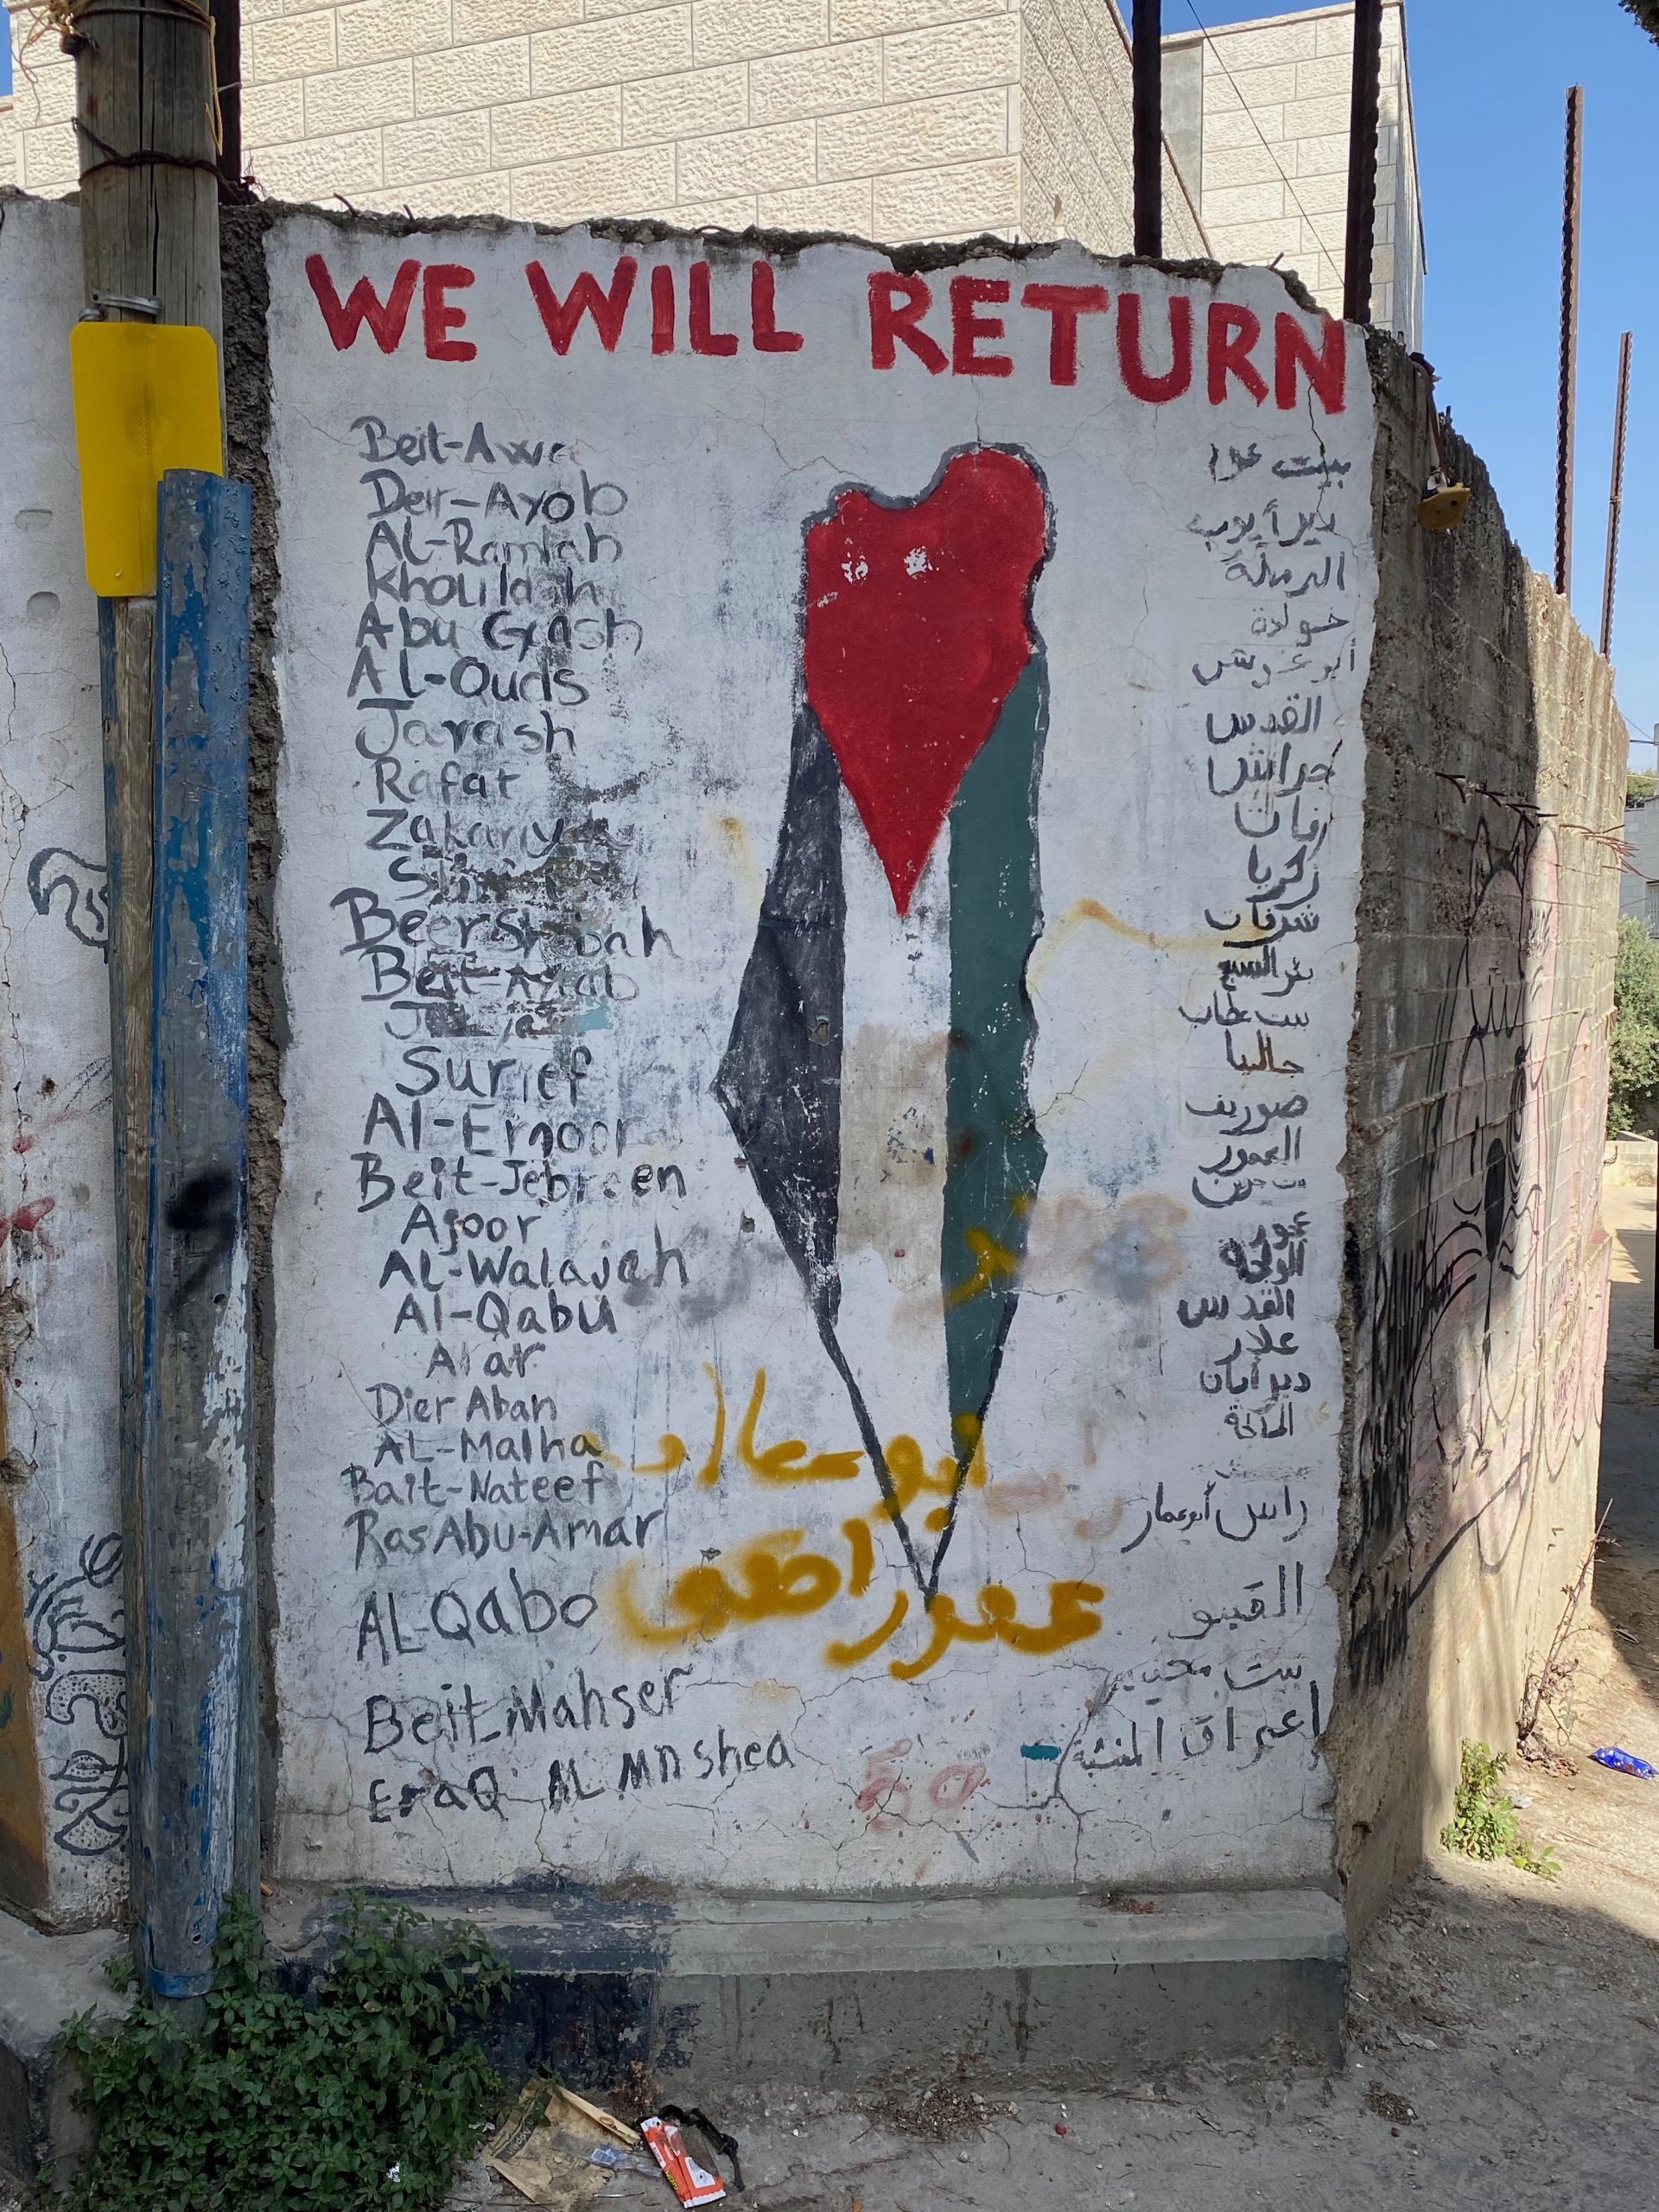 WE WILL RETURN
Beit-Awa
Deir-Ayob
AL-Ramlah
Khouildah
Abu Gosh
Al-Quds
Jarash
Rafat
Zakariy
Beer Shibah
Beit-Atab
Surief
Al-Emoor
Beit-Jebreen
Ajoor
AL-Walajeh
Al-Qabu
Alar
Dier Aban
AL-Malha
Bait-Nateef
Ras Abu-Amar
AL-Qabo
Beit Mahser
EraQ AL Mnshea
دير أيوب
الرملة
خولدة
أبو غوش
القدس
جراش
رفات
زكريا
شرفات
بئر السبع
بيت عطاب
جاليا
صوريف
العمور
عجور
الولجة
القدس
علار
دير أبان
المالحة
راس أبو عمار
القبو
بيت محيير
اعراق المنشية
ابو سعاد